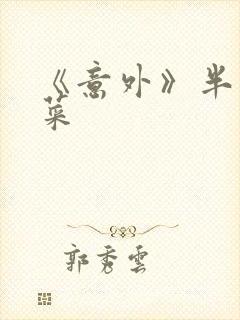 《意外》半
菜
郭秀雲